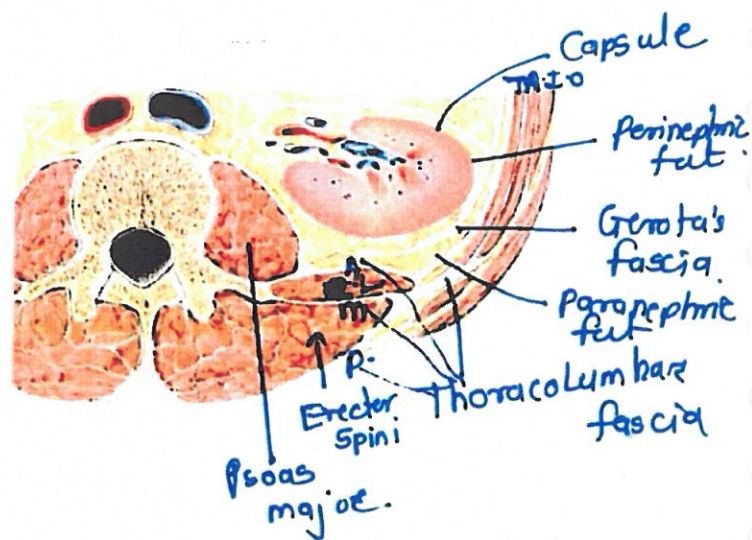 Capsule
TA I O
Perinephric
fat.
Gerota's
fascia
Paranephric
fat
A
L
m
P.
Thoracolumbar
fascia
Erector
Spini
Psoas
major.